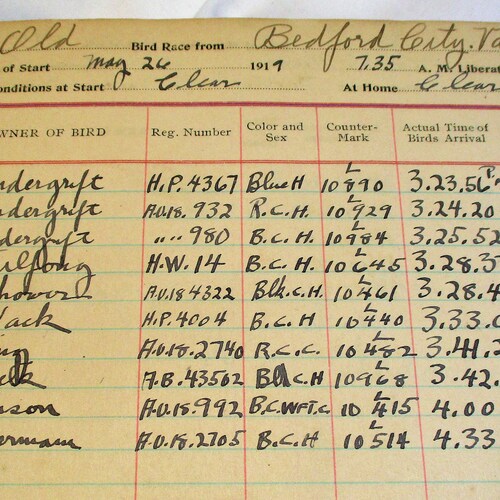 Old Bird Race from Bedford City. Va
of Start May 26 1919 7.35 A. M. Liberat
onditions at Start Clear At Home Clear
WNER OF BIRD Reg. Number Color and Sex Counter-Mark Actual Time of Birds Arrival
ndergrift H.P. 4367 Blue H 10 L 890 3.23.56 P.
ndergrift A.U.18. 932 R.C.H. 10 L 929 3.24.20
dergrift " " " 980 B.C.H. 10 L 984 3.25.52
ulfong H.W. 14 B.C.H. 10 L 645 3.28.3
A.U.18 4322 Blk.C.H. 10 L 461 3.28.4
Mack H.P. 4004 B.C.H 10 L 440 3.33.
A.U.18.2740 R.C.C. 10 L 482 3.41.
A.B. 43562 C.H 10 L 968 3.42.
nson A.U.18.992 B.C.WFT.C 10 L 415 4.00
ermann A.U.18.2705 B.C.H 10 L 514 4.33